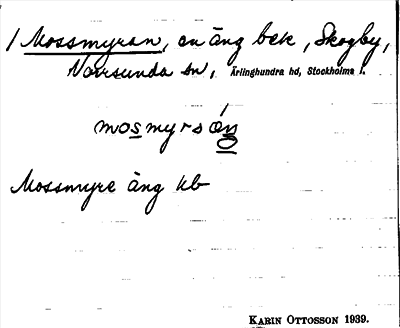 1 Mossmyran, en äng bek, Skogby,
Norrsunda sn, Ärlinghundra hd, Stockholms l.
mosmyrsæ̀n
Mossmyre äng kb
KARIN OTTOSSON 1939.